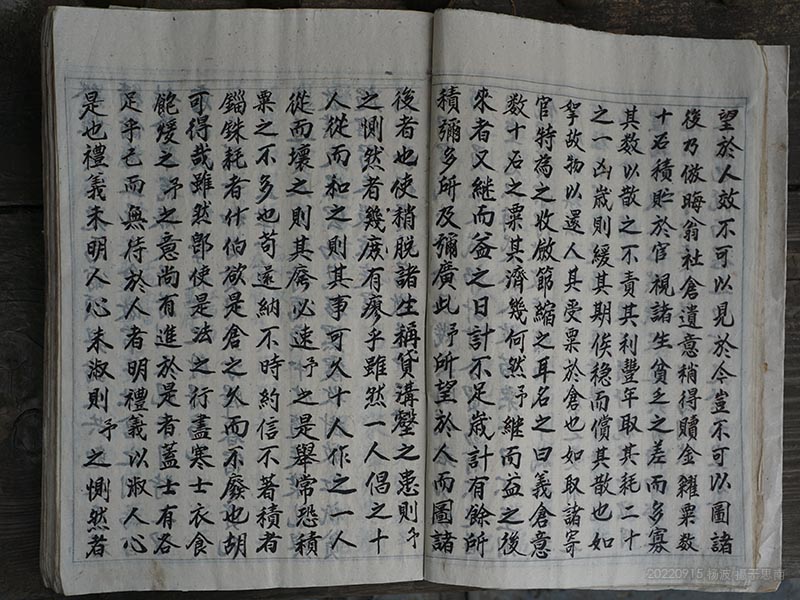 望於人效不可以見於今豈不可以圖諸
後乃倣晦翁社倉遺意稍得贖金糴粟数
十石積貯於官視諸生貧乏之差而多寡
其数以散之不責其利豐年取其耗二十
之一凶歲則緩其期俟稔而償其散也如
挐故物以還人其受粟於倉也如取諸寄
官特為之收斂節縮之耳名之曰義倉意
数十石之粟其濟幾何然予継而益之後
來者又継而益之日計不足歲計有餘所
積彌多所及彌廣此予所望於人而圖諸
後者也使稍脱諸生稱貸溝壑之患則予
之惻然者幾庶有瘳乎雖然一人倡之十
人從而和之則其事可久十人作之一人
從而壞之則其廢必速予之是舉常恐積
粟之不多也苟遂納不時約信不著積者
錙銖耗者什伯欲是倉之久而不廢也胡
可得哉雖然鄧使是法之行盡寒士衣食
飽煖之予之意尚有進於是者蓋士有各
足乎己而無待於人者明禮義以淑人心
是也禮義未明人心未淑則予之惻然者
20220915 杨波 摄于思南